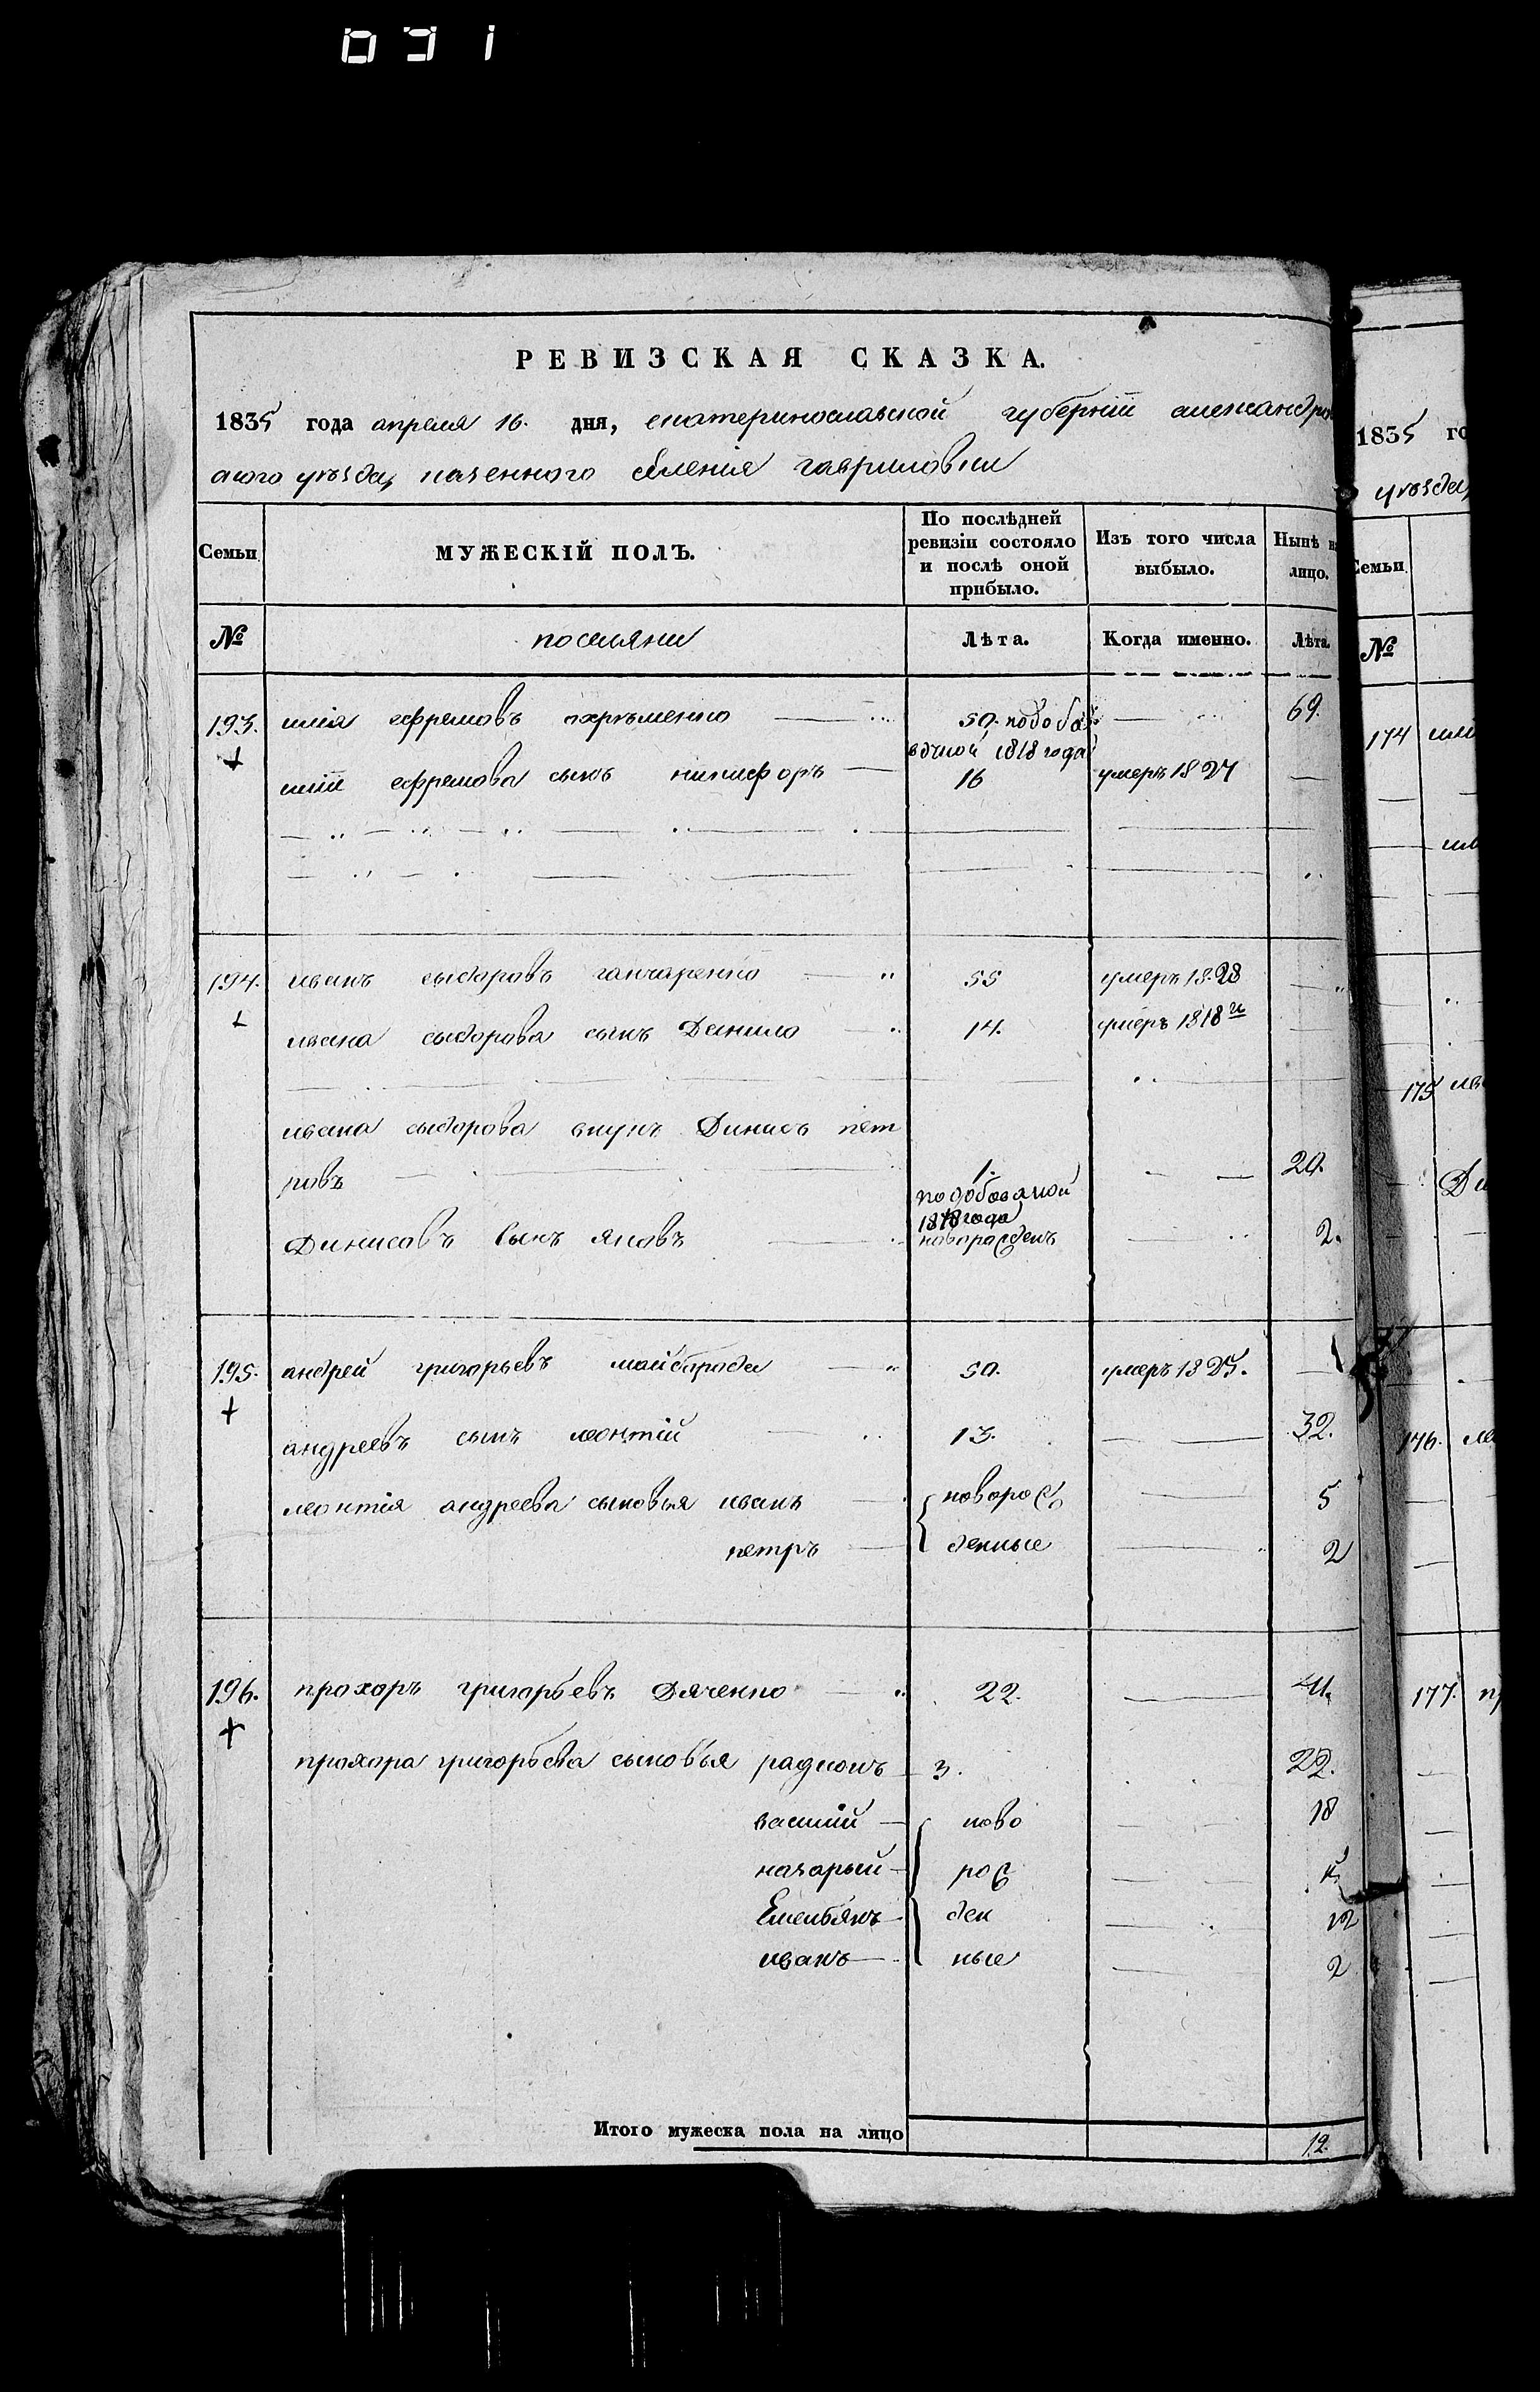 031
РЕВИЗСКАЯ СКАЗКА.
1835 года апреля 16. дня, екатеринославской губернiи александров
ского уѣзда, казенного селенiя гавриловки
Семьи
МУЖЕСКIЙ ПОЛЪ.
По послѣдней ревизiи состояло и послѣ оной прибыло.
Изъ того числа выбыло.
Нынѣ на лицо.
№
поселяни
Лѣта.
Когда именно.
Лѣта.
193. илiя ефремовъ охрѣменко 50. подоба 69.
вочной 1818 года
илiи ефремова сынъ никифоръ 16 умеръ 1827
194. иванъ сыдоровъ ганчаренко 55 умеръ 1828
ивана сыдорова сынъ Данило 14. умеръ 1818 го
ивана сыдорова внукъ Динисъ пет
ровъ 1. 20.
подобавочной
1818 года
Динисовъ сынъ яковъ новорожденъ 2.
195. андрей григорьевъ майборода 50. умеръ 1825.
андреевъ сынъ леонтiй 13. 32.
леонтiя андреева сыновья иванъ новорож 5
петръ денные 2
196. прохоръ григорьевъ Дяченко 22. 41.
прохора григорьева сыновья радионъ 3. 22.
василiй ново 18
назарый рож
Емельянъ ден 12
иванъ ные 2
Итого мужеска пола на лицо 12.
1835 го
уѣзда,
Семьи
№
174
175
176.
177.